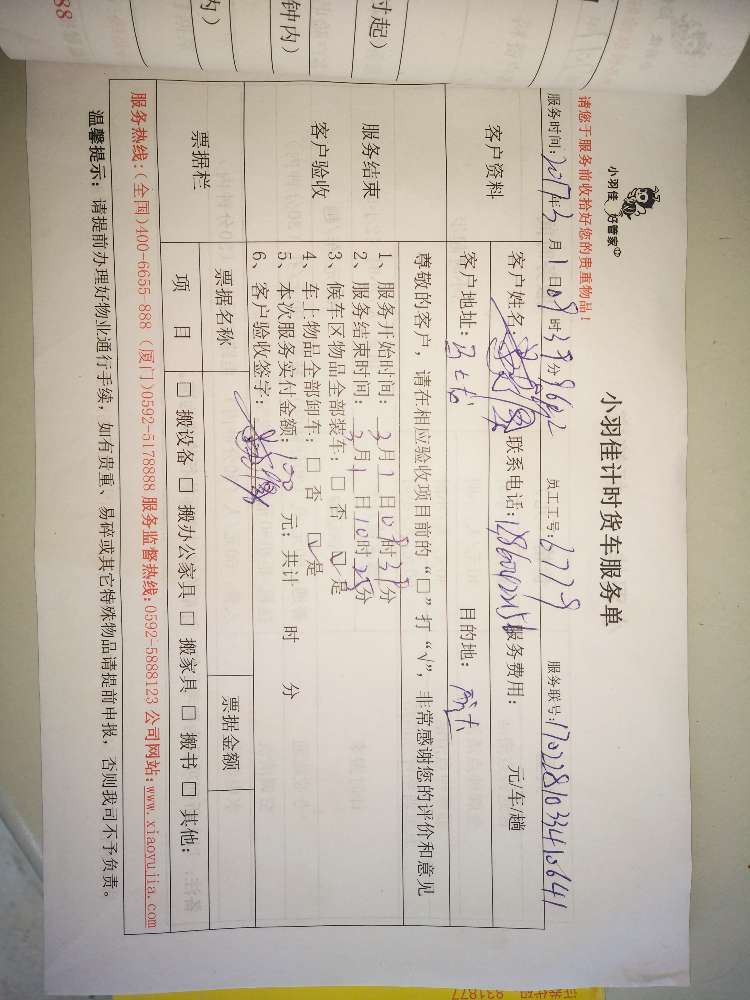 小羽佳 好管家
小羽佳计时货车服务单
请您于服务前收拾好您的贵重物品！
服务时间：2017年3月1日09时39分 员工工号：6779 服务联号：170228103341064 1
客户资料
客户姓名： 联系电话： 服务费用： 元/车/趟
客户地址： 目的地：
服务结束
客户验收
尊敬的客户，请在相应验收项目前的“□”打“√”，非常感谢您的评价和意见
1、服务开始时间：3月1日09时39分
2、服务结束时间：3月1日10时25分
3、候车区物品全部装车：□ 否 ☑ 是
4、车上物品全部卸车：□ 否 ☑ 是
5、本次服务实付金额：100元；共计 时 分
6、客户验收签字：
票据栏
票据名称 票据金额
项 目 □ 搬设备 □ 搬办公家具 □ 搬家具 □ 搬书 □ 其他：
服务热线：(全国)400-6655-888 (厦门)0592-5178888 服务监督热线：0592-5888123 公司网站：www.xiaoyujia.com
温馨提示：请提前办理好物业通行手续，如有贵重、易碎或其它特殊物品请提前申报，否则我司不予负责。
付起)
钟内)
内)
88
831877